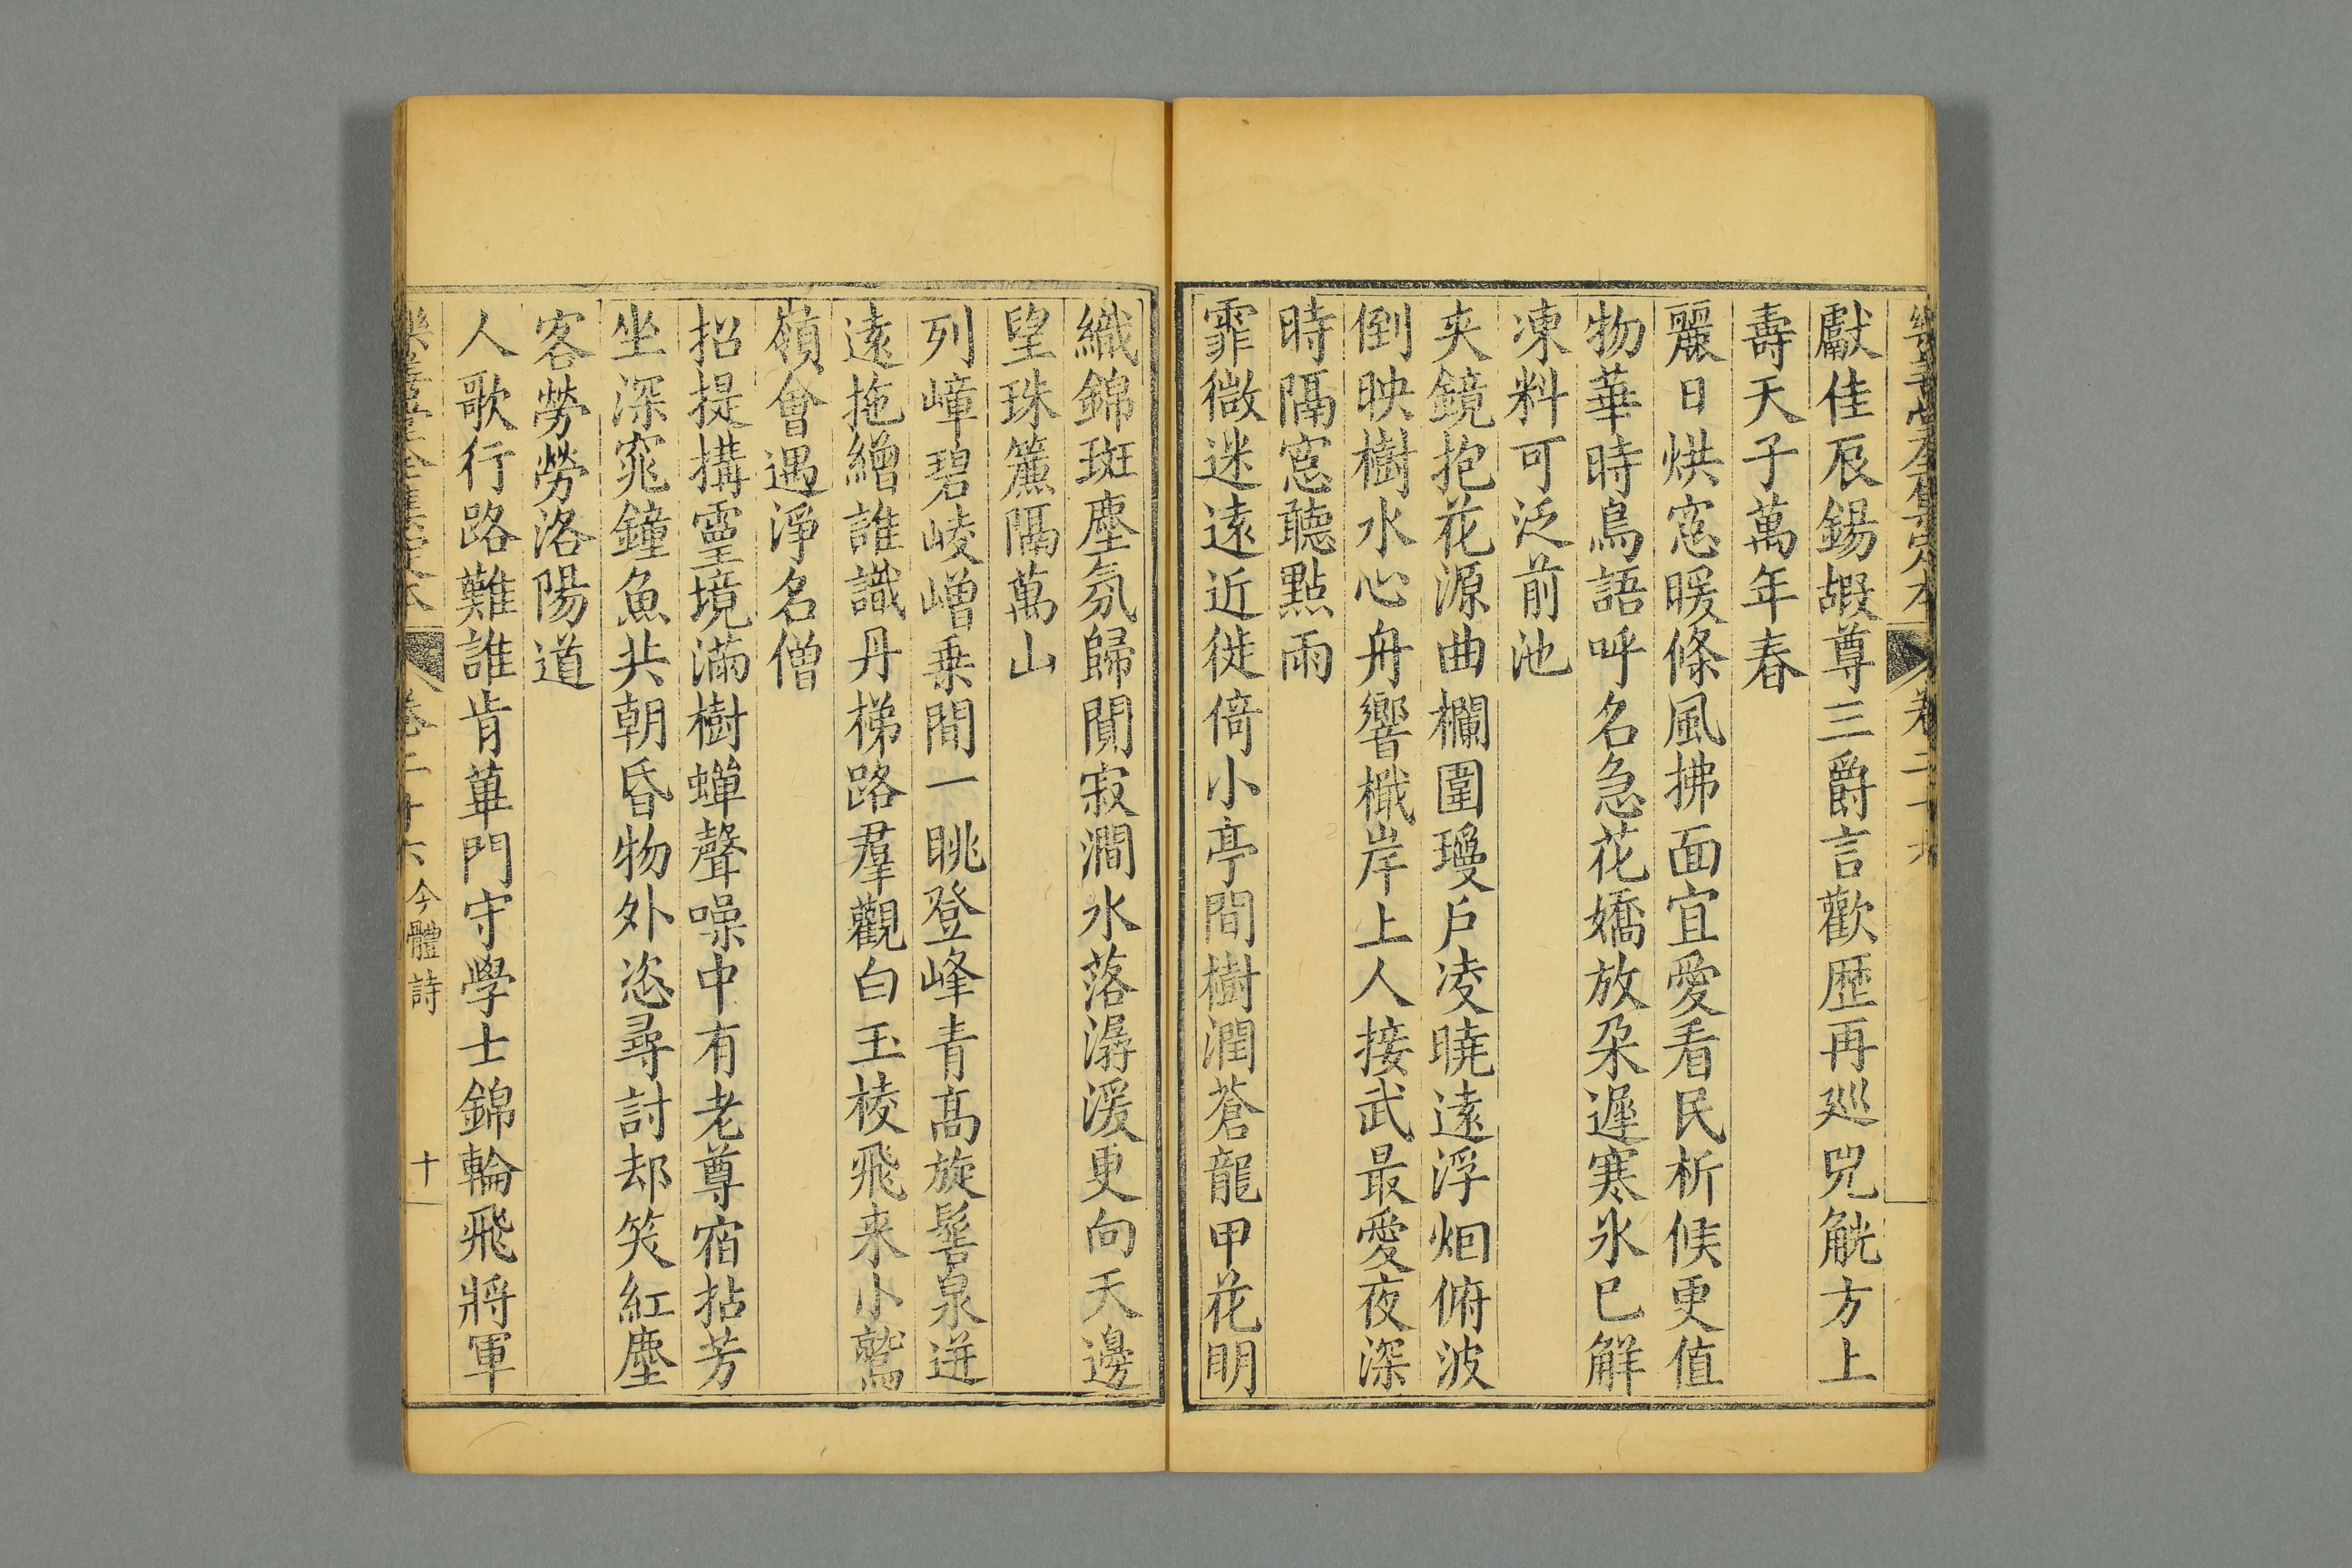 樂善堂全集定本 卷二十六
獻佳辰錫嘏尊三爵言歡歷再廵兕觥方上
壽天子萬年春
麗日烘窓暖條風拂面宜愛看民析候更值
物華時鳥語呼名急花嬌放朶遲寒氷已解
凍料可泛前池
夾鏡抱花源曲欄圍璦戶凌曉遠浮烟俯波
倒映樹水心舟響檝岸上人接武最愛夜深
時隔窓聽點雨
霏微迷遠近徙倚小亭間樹潤蒼龍甲花明
織錦斑塵氛歸闃寂澗水落潺湲更向天邊
望珠簾隔萬山
列嶂碧崚嶒乗間一眺登峰青高旋髻泉迸
遠拖繒誰識丹梯路羣觀白玉棱飛来小鷲
嶺會遇淨名僧
招提搆靈境滿樹蟬聲噪中有老尊宿拈芳
坐深窕鐘魚共朝昏物外恣尋討却笑紅塵
客勞勞洛陽道
人歌行路難誰肯蓽門守學士錦輪飛將軍
樂善堂全集定本 卷二十六 今體詩 十